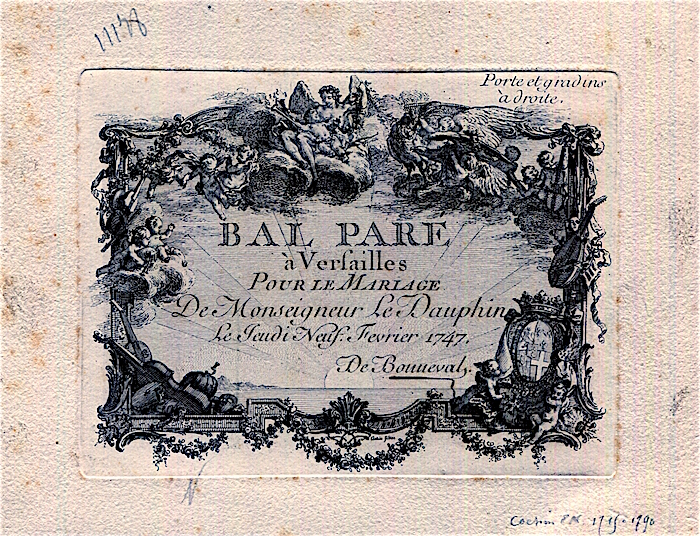 11178
Porte et gradins
à droite.
BAL PARE
à Versailles
POUR LE MARIAGE
De Monseigneur Le Dauphin
Le Jeudi Neuf. Fevrier 1747.
De Bonneval.
Cochin 1715-1790